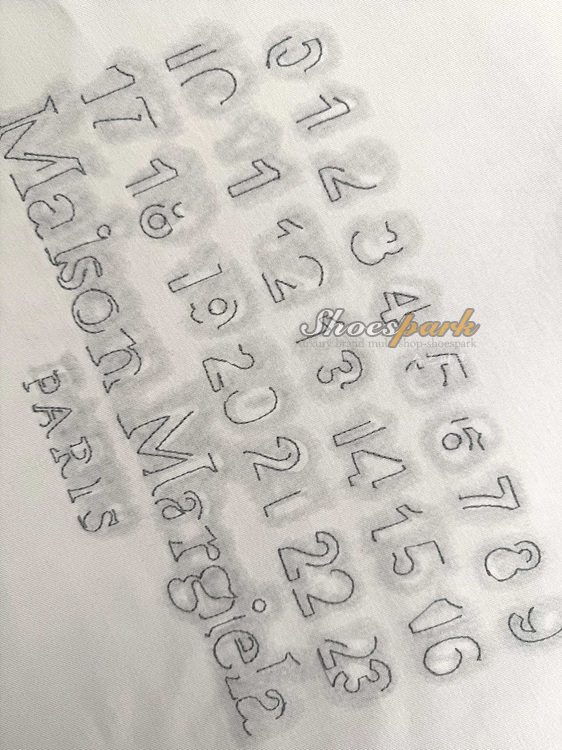 0 1 2 3 4 5 6 7 8 9
10 11 12 13 14 15 16
17 18 19 20 21 22 23
Maison Margiela
PARIS
Shoespark
luxury brand multi shop-shoespark